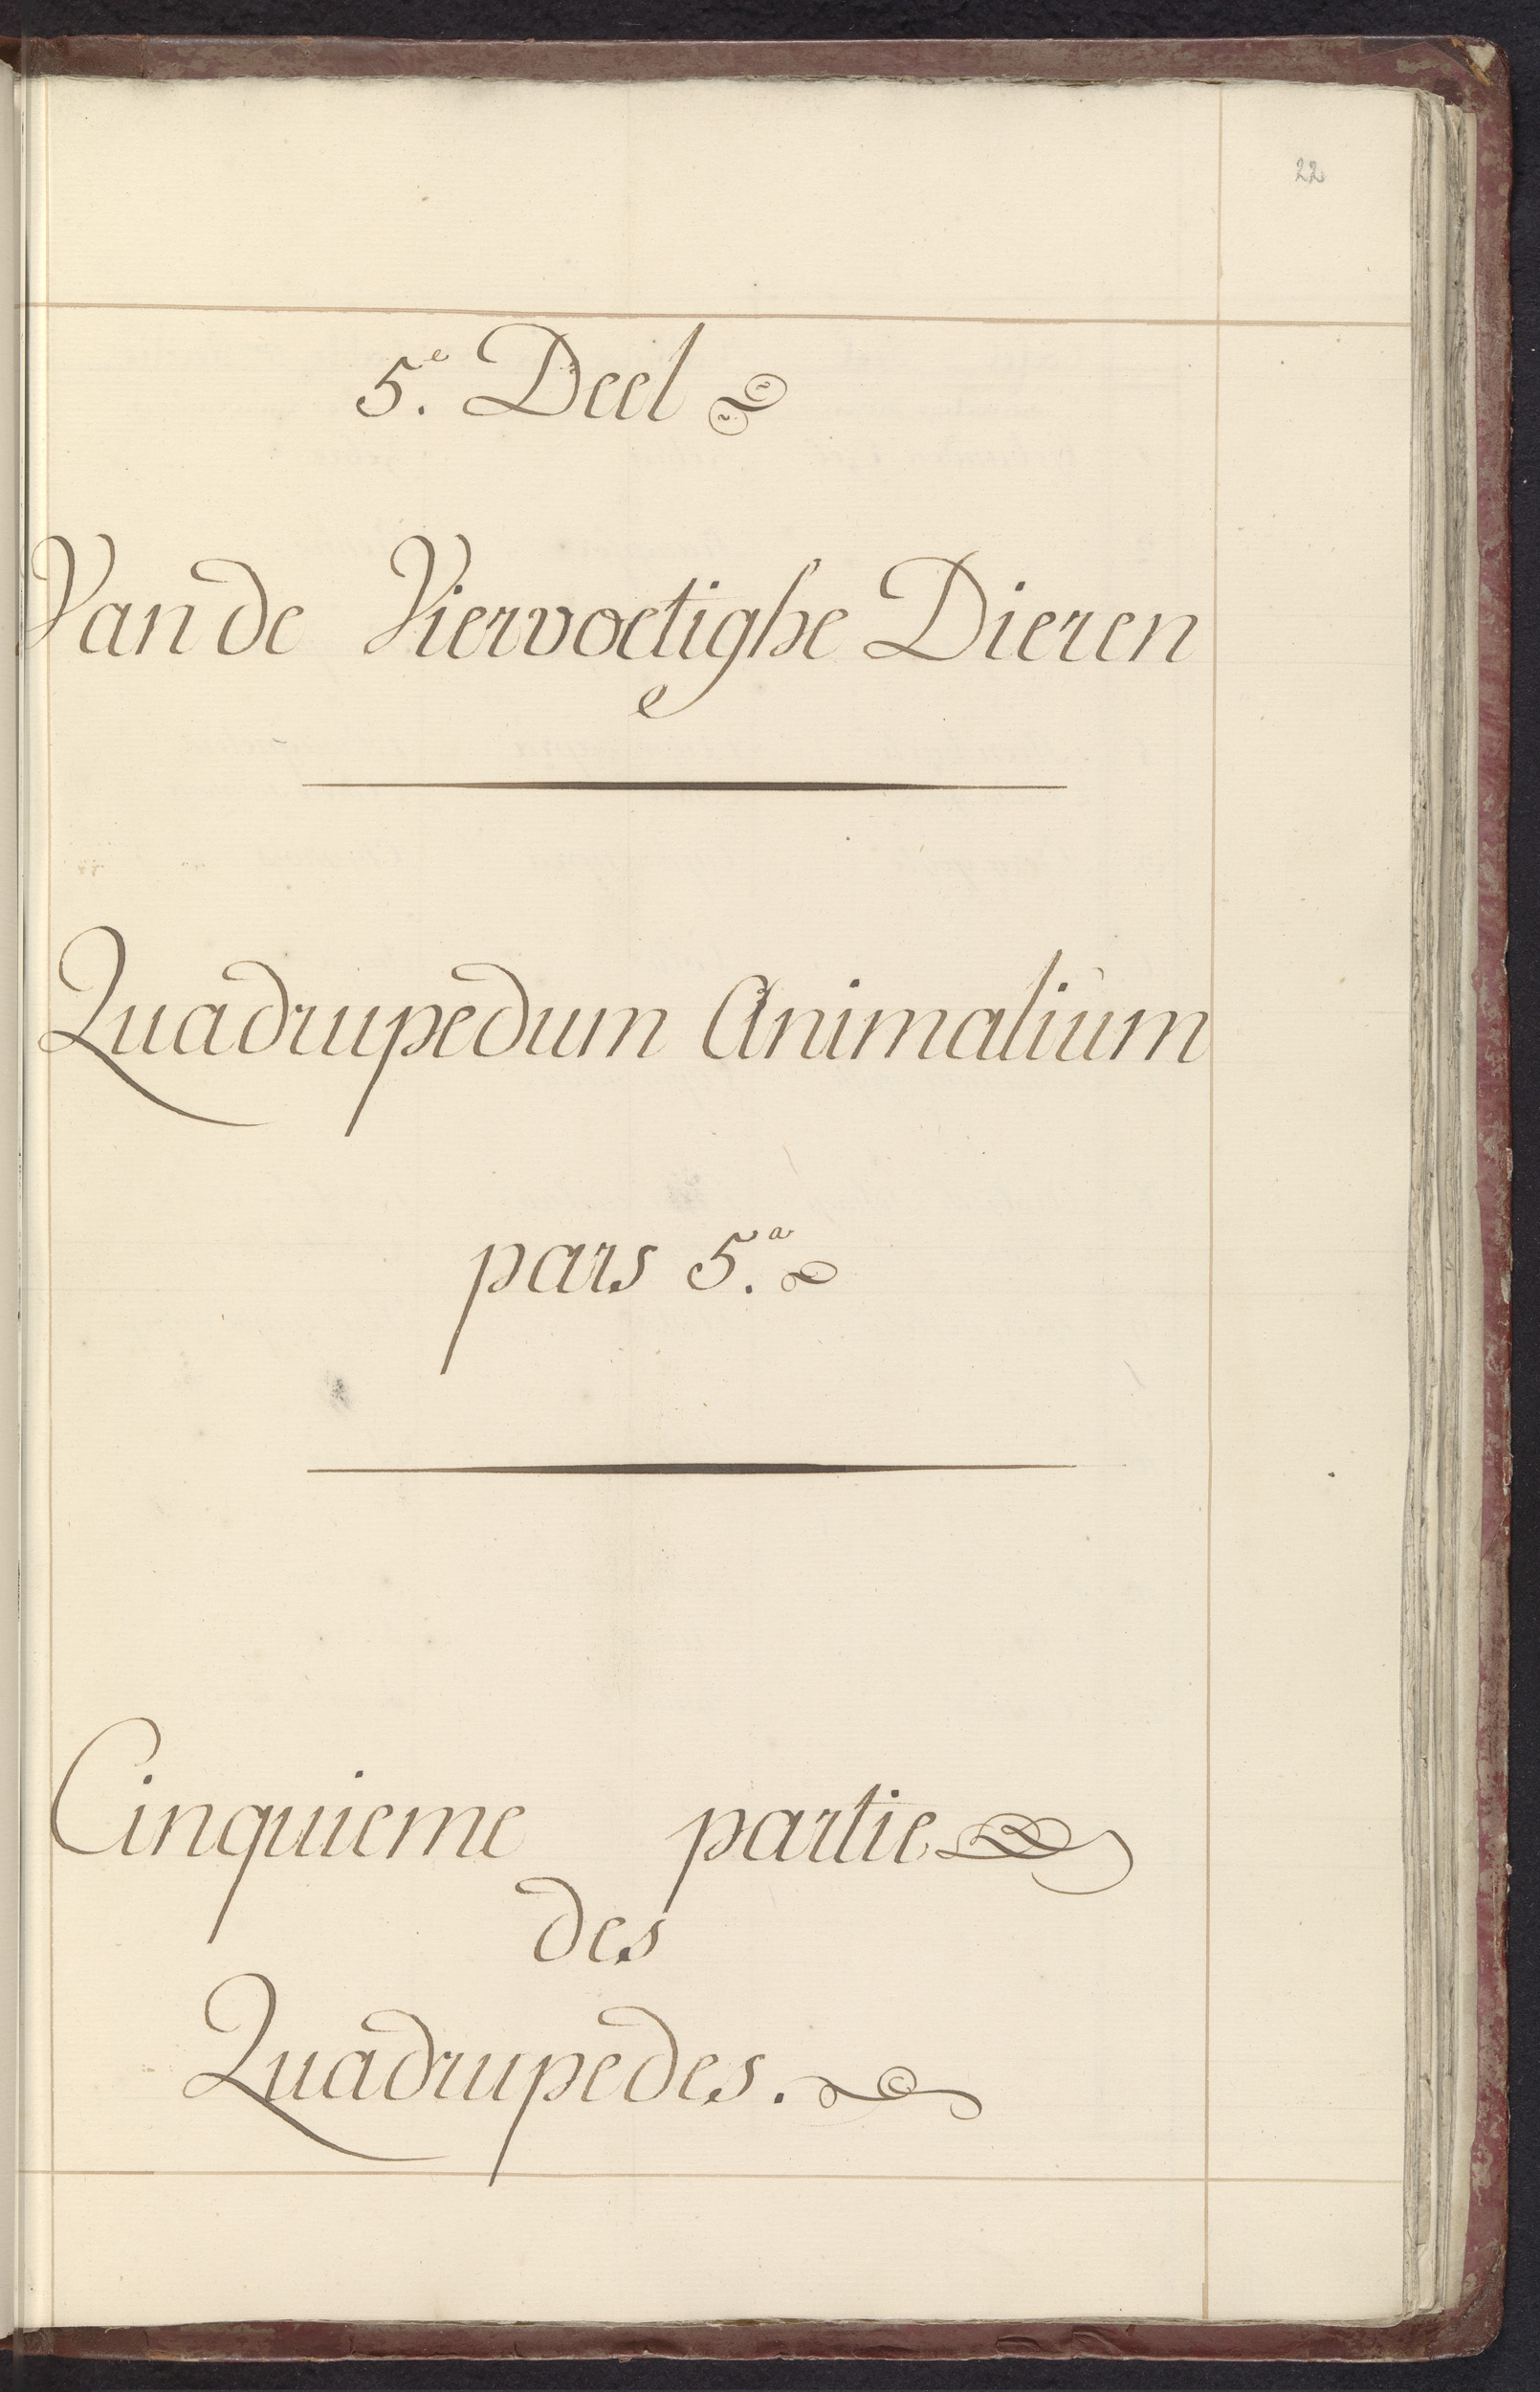 22
5.e Deel
Van de Viervoetighe Dieren
Quadrupedum Animalium
pars 5.a
Cinquieme partie
des
Quadrupedes.